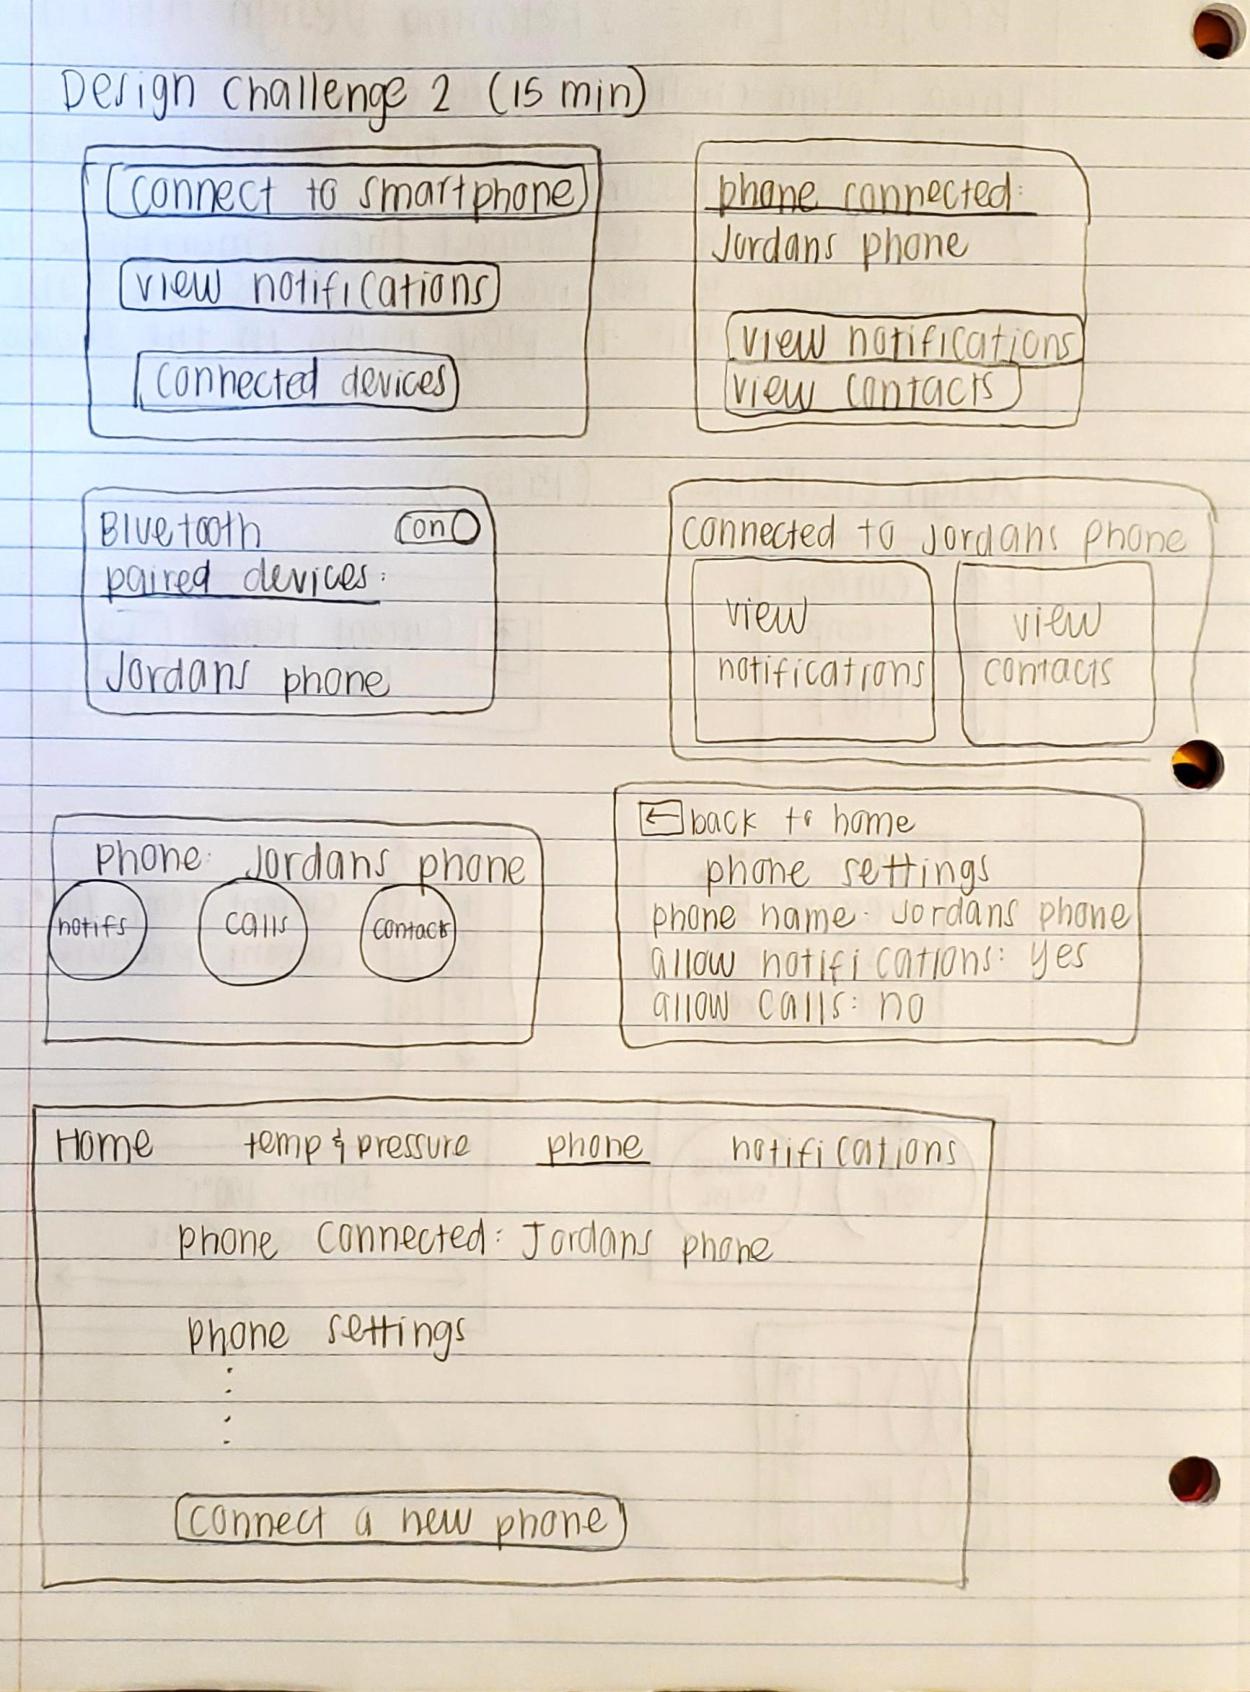 Design Challenge 2 (15 min)
connect to smartphone
view notifications
connected devices
phone connected:
Jordans phone
view notifications
view contacts
Bluetooth on
paired devices:
Jordans phone
connected to Jordans phone
view
notifications
view
contacts
phone: Jordans phone
notifs calls contacts
← back to home
phone settings
phone name: Jordans phone
allow notifications: yes
allow calls: no
Home temp & pressure phone notifications
phone connected: Jordans phone
phone settings
connect a new phone